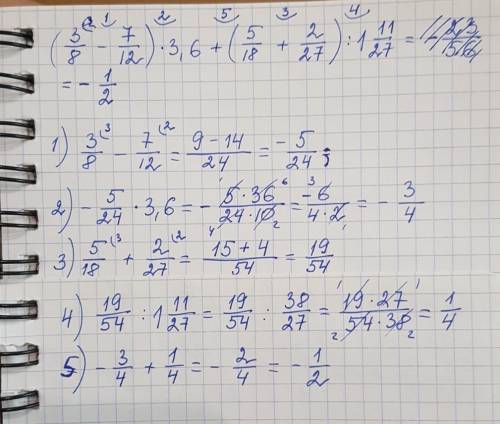 1 2 5 3 4
(3/8 - 7/12) · 3,6 + (5/18 + 2/27) : 1 11/27 =
= - 1/2
1) 3/8 (3 - 7/12 (2 = 9-14/24 = -5/24;
2) - 5/24 · 3,6 = - 5·36/24·10 = -6/4·2 = - 3/4
3) 5/18 (3 + 2/27 (2 = 15+4/54 = 19/54
4) 19/54 : 1 11/27 = 19/54 : 38/27 = 19·27/54·38 = 1/4
5) - 3/4 + 1/4 = - 2/4 = - 1/2